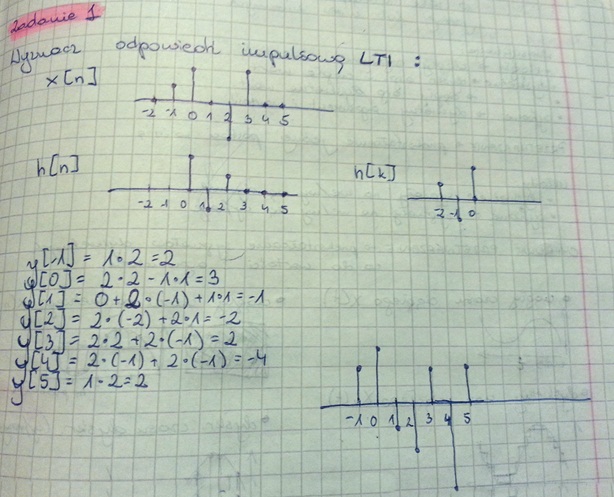 Zadanie 1
Wyznacz odpowiedź impulsową LTI :
x[n]
-2 -1 0 1 2 3 4 5
h[n]
-2 -1 0 1 2 3 4 5
h[k]
-2 -1 0
y[-1] = 1•2 = 2
y[0] = 2•2 - 1•1 = 3
y[1] = 0 + 2•(-1) + 1•1 = -1
y[2] = 2•(-2) + 2•1 = -2
y[3] = 2•2 + 2•(-1) = 2
y[4] = 2•(-1) + 2•(-1) = -4
y[5] = 1•2 = 2
-1 0 1 2 3 4 5